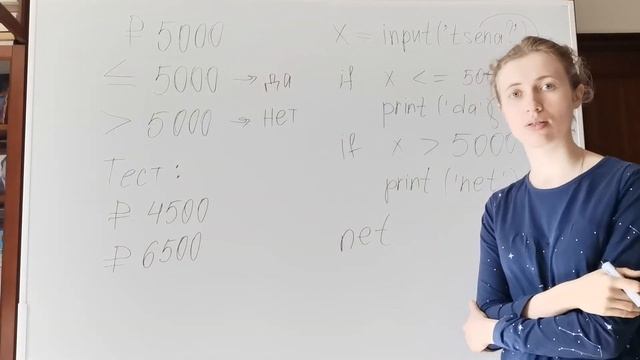 ₽ 5000
≤ 5000 → да
> 5000 → нет
Тест:
₽ 4500
₽ 6500
x = input('tsena?')
if x <= 50
print ('da'
if x > 5000
print ('net')
net